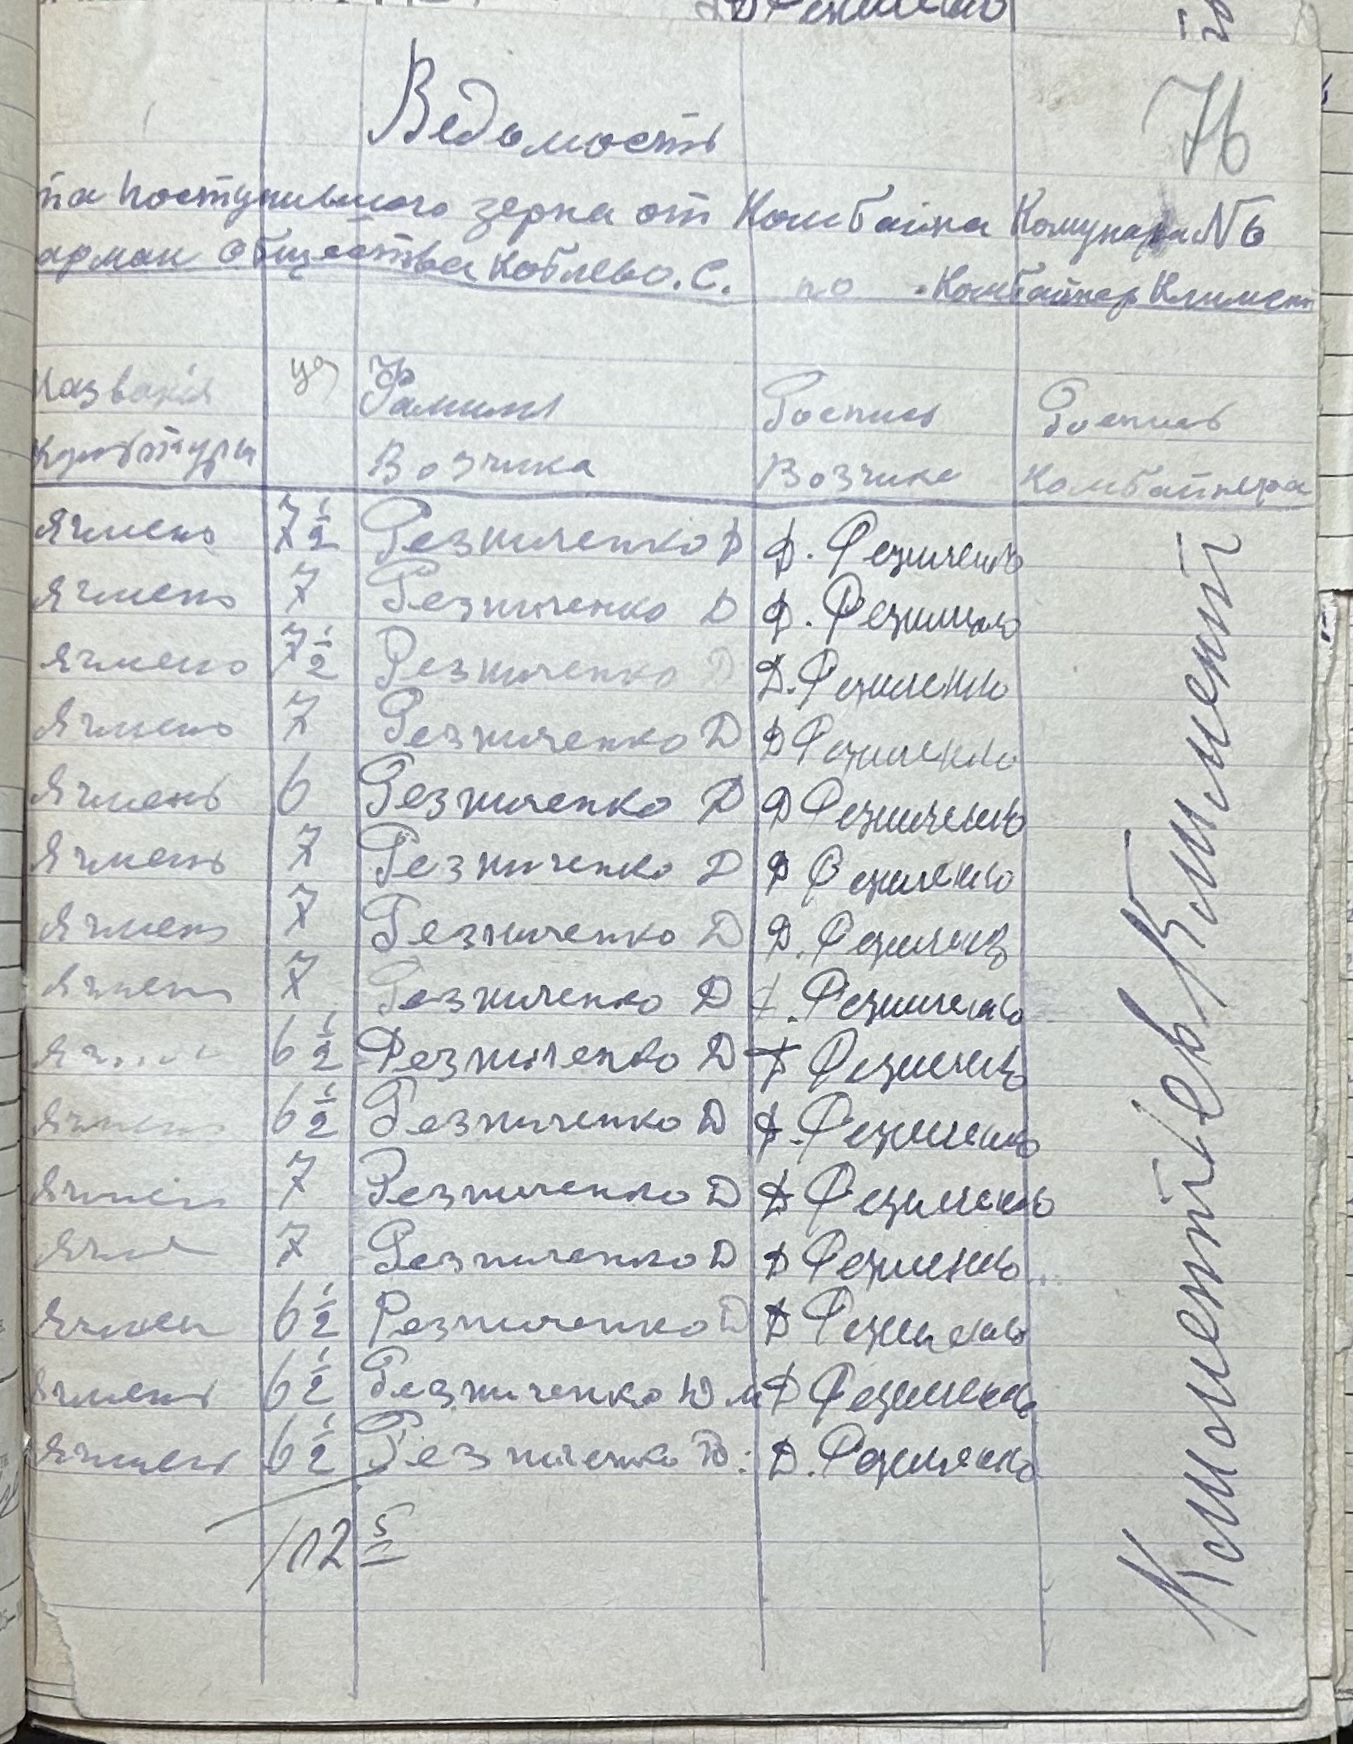 76
Ведомость
па поступившого зерна от Комбайна Комунара №6
арман общества Коблево. С. по Комбайнер Климент
Названія цн Фамилия Роспись Роспись
Культуры Возчика Возчика Комбайнера
Ячмень 7 1/2 Резниченко Д Д. Резниченко
Ячмень 7 Резниченко Д Д. Резниченко
Ячмень 7 1/2 Резниченко Д Д. Резниченко
Ячмень 7 Резниченко Д Д Резниченко
Ячмень 6 Резниченко Д Д Резниченко
Ячмень 7 Резниченко Д Д Резниченко
Ячмень 7 Резниченко Д Д. Резниченко
Ячмень 7 Резниченко Д Д. Резниченко
Ячмень 6 1/2 Резниченко Д Д Резниченко
Ячмень 6 1/2 Резниченко Д Д. Резниченко
Ячмень 7 Резниченко Д Д Резниченко
Ячме 7 Резниченко Д Д Резниченко
Ячмен 6 1/2 Резниченко Д Д Резниченко
Ячмень 6 1/2 Резниченко Д м Д Резниченко
Ячмень 6 1/2 Резниченко Д. Д. Резниченко
102 5
Климентьев Климент